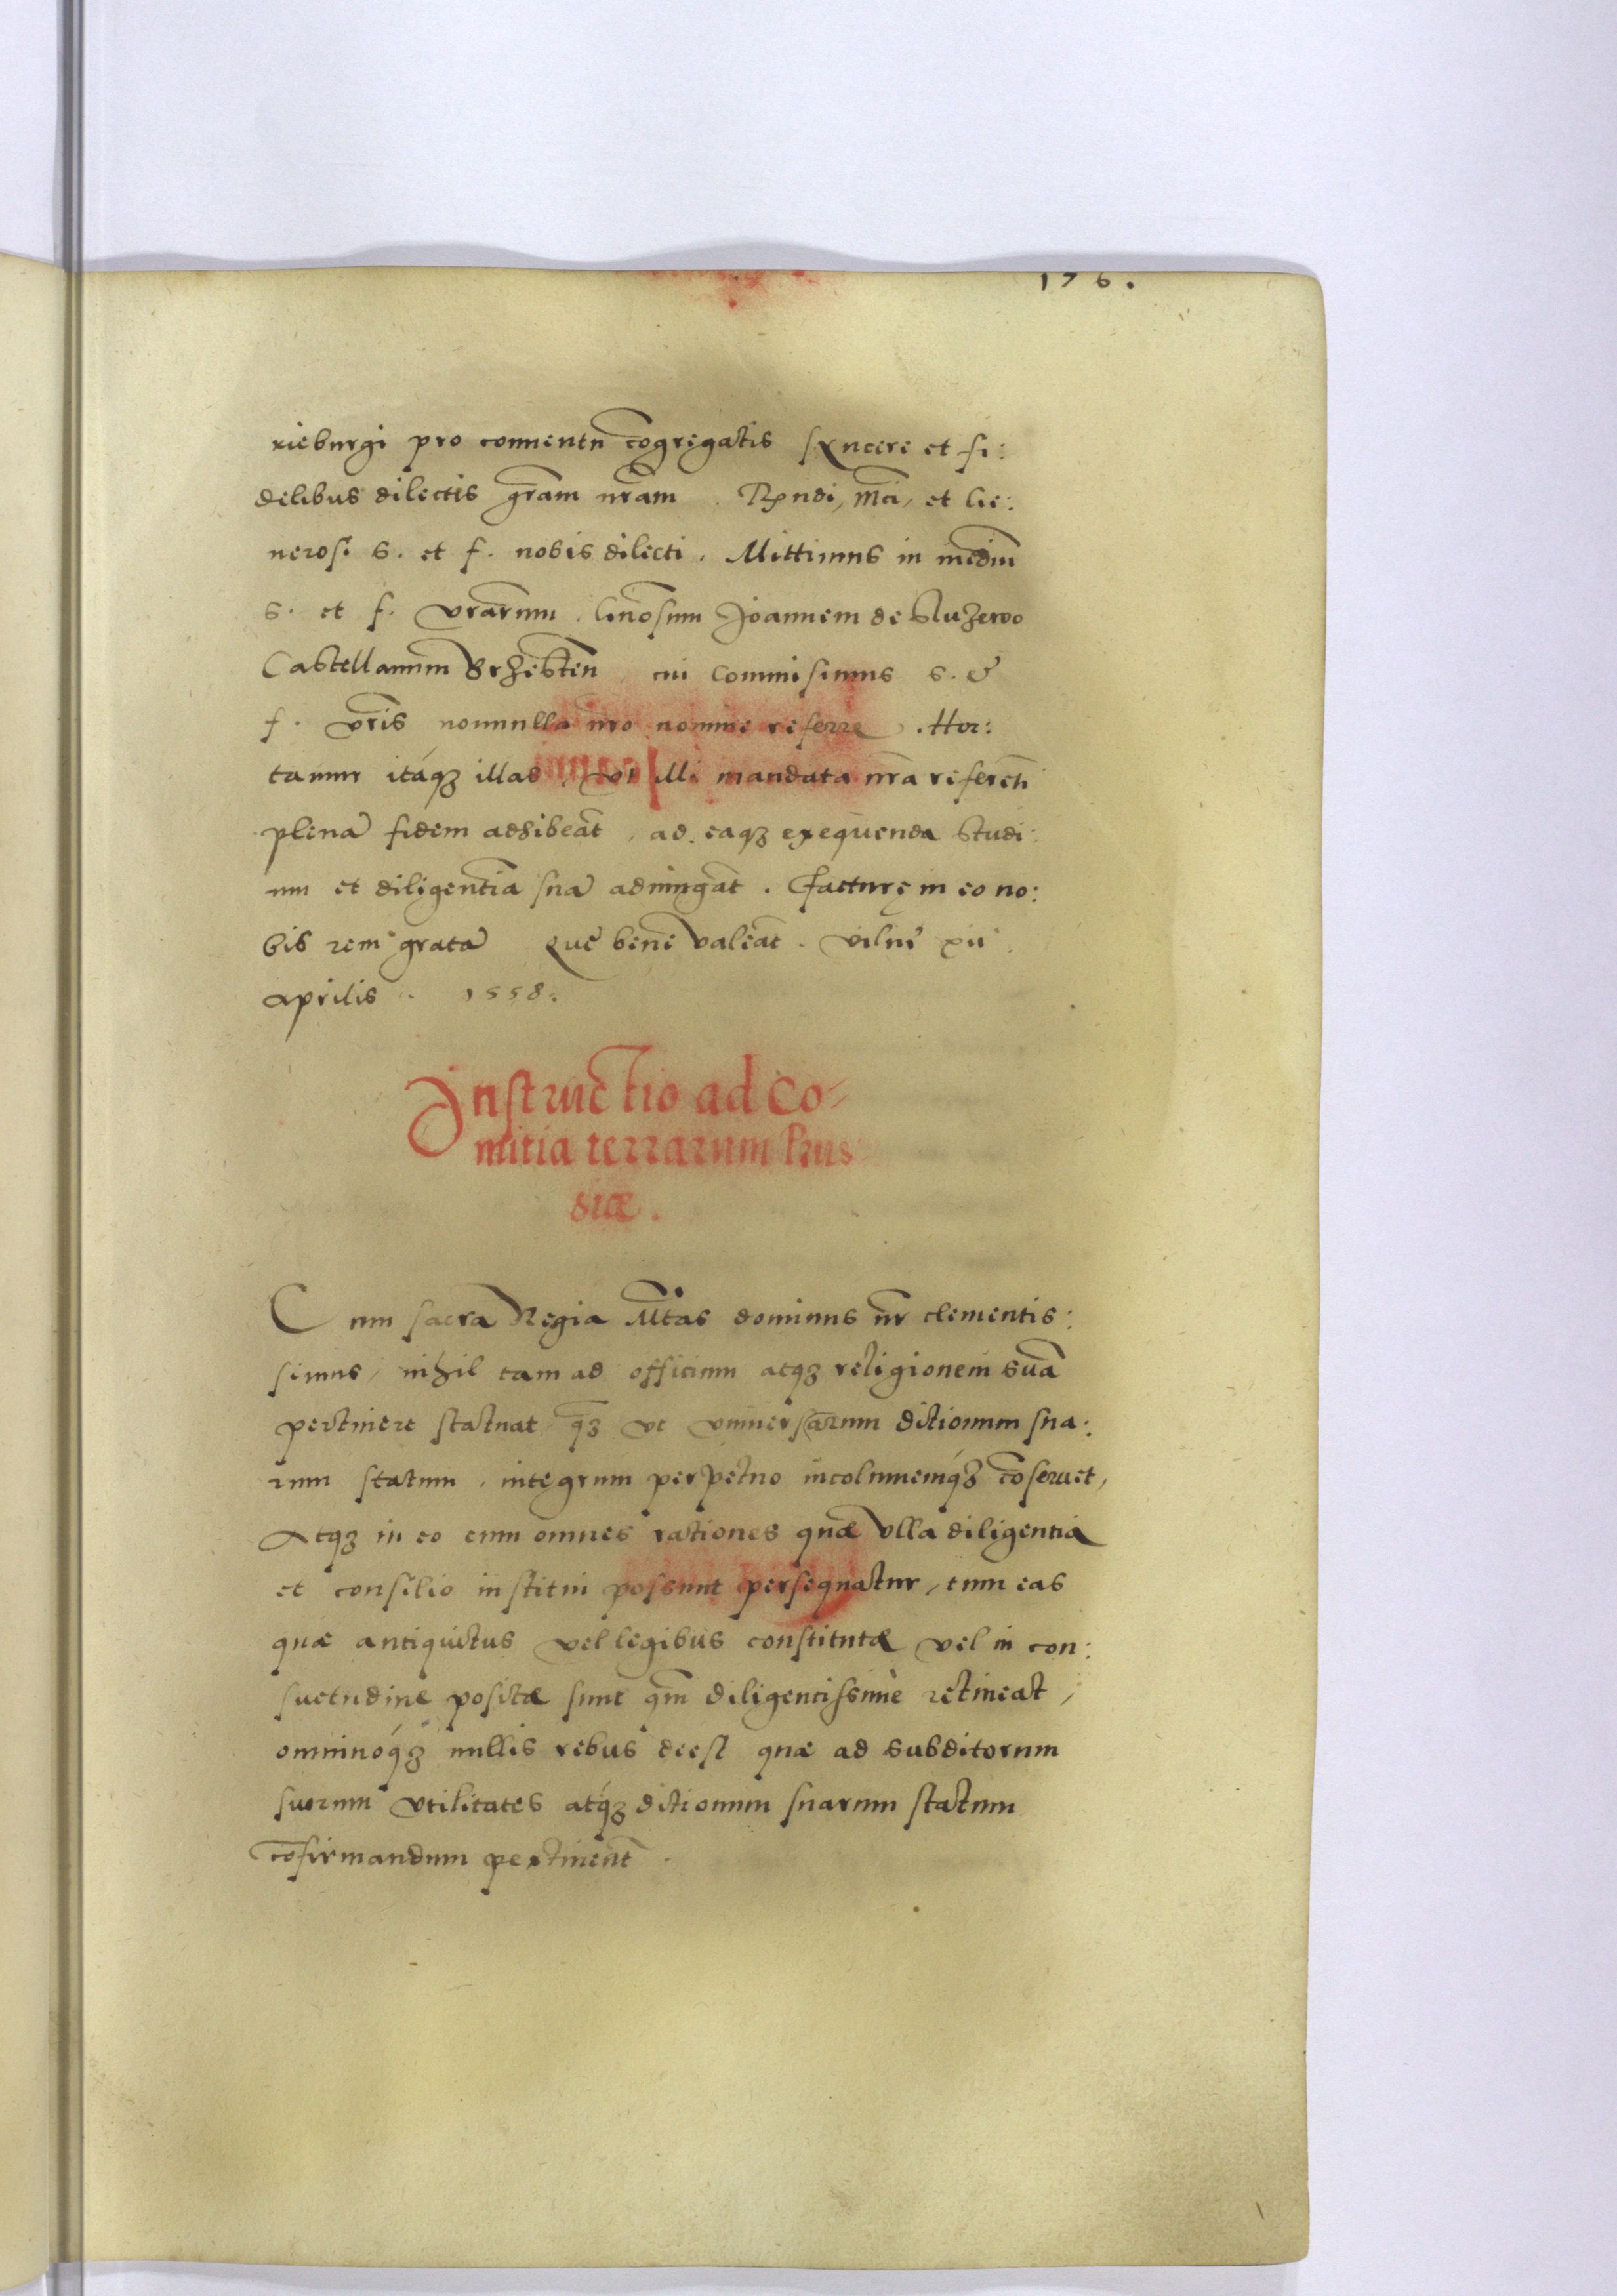 176.
rieburgi pro conuentu cõgregatis syncere et fi:
delibus dilectis grãm nrãm. Rx̃ndi, Mc̃i, et Ge:
nerosi s. et f. nobis dilecti. Mittimus in mediũ
s. et f. vrãrum. Gnõsum Joannem de Sluzewo
Castellanum Brzesteñ cui commisimus s. &
f. vrĩs nonnulla nrõ nomine referre. Hor:
tamur itáqꝫ illas, vt illi mandata nrã referẽti
plenã fidem adhibeãt, ad eaqꝫ exequenda studi:
um et diligentiã suã adiungãt. Facturę in eo no:
bis rem gratã Quę bene valeãt. Vilnę xii
aprilis. 1558.
Instructio ad Co-
mitia terrarum Prus
siæ.
Cum sacra Regia Mtãs dominus nr̃ clementis:
simus, nihil tam ad officium atqꝫ religionem suã
pertinere statuat, q̃ꝫ vt vniuersarum ditionum sua:
rum statum, integrum perpetuo incolumemqꝫ cõseruet,
Atqꝫ in eo cum omnes rationes quæ vlla diligentia
et consilio institui possunt persequatur, tum eas
quæ antiquitus vel legibus constitutæ vel in con:
suetudine positæ sunt qm̃ diligentissimè retineat,
omninóqꝫ nullis rebus deest quæ ad subditorum
suorum vtilitates atqꝫ ditionum suarum statum
cõfirmandum pertinent.